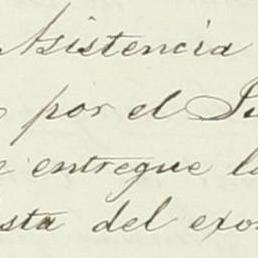 Asistencia
por el Ju
entregue la
sta del exor